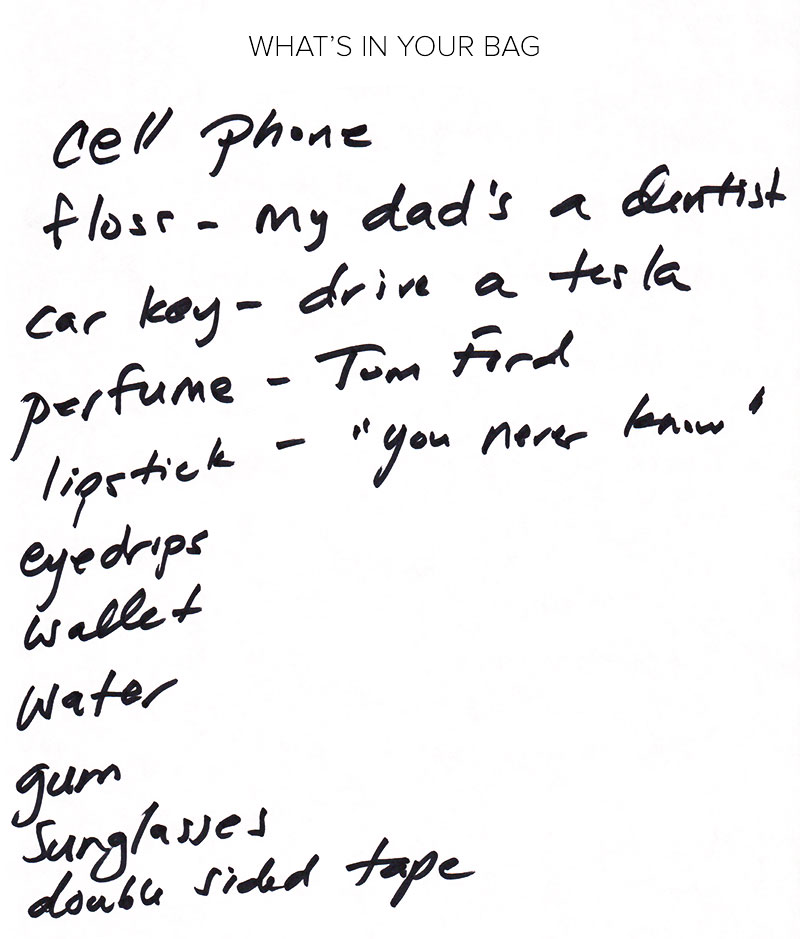 WHAT'S IN YOUR BAG
cell phone
floss - my dad's a dentist
car key - drive a tesla
perfume - Tom Ford
lipstick - "you never know"
eyedrips
wallet
water
gum
sunglasses
double sided tape